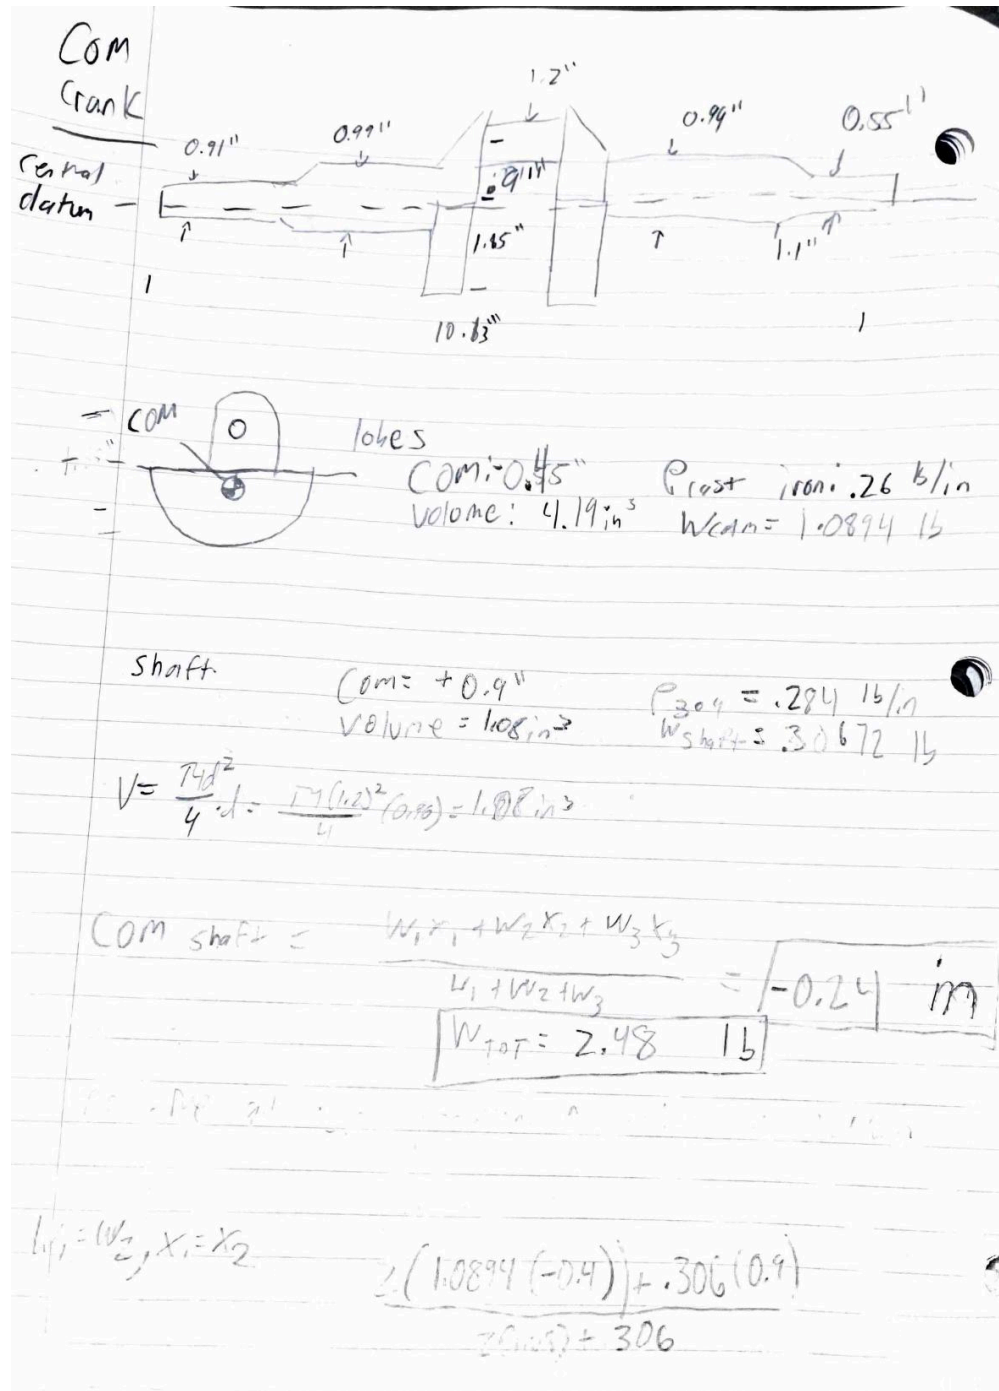 COM
Crank
central
datum
0.91"
0.99"
1.2"
0.94"
0.55"
.9"
1.85"
1.1"
10.63"
COM
lobes
COM: -0.45"
ρcast iron: .26 lb/in
Volume: 4.19 in³
Wcam = 1.0894 lb
shaft
COM = +0.9"
ρ304 = .284 lb/in
Volume = 1.08 in³
Wshaft = .30672 lb
V = πd²/4 · d = π(1.2)²/4 (0.96) = 1.08 in³
COM shaft = W₁x₁ + W₂x₂ + W₃x₃ / W₁ + W₂ + W₃ = -0.24 in
WTOT = 2.48 lb
W₁ = W₂, x₁ = x₂
2(1.0894(-0.4)) + .306(0.9)
+ 306